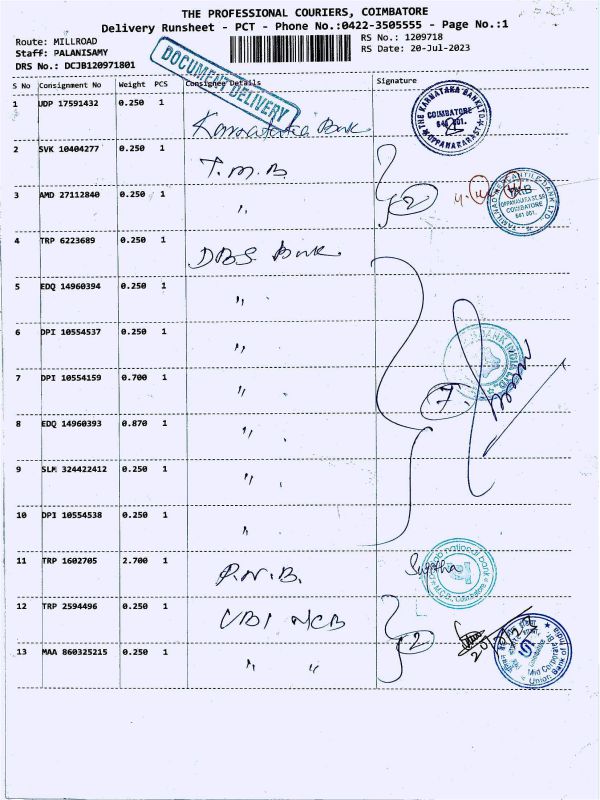 THE PROFESSIONAL COURIERS, COIMBATORE
Delivery Runsheet - PCT - Phone No.:0422-3505555 - Page No.:1
Route: MILLROAD
Staff: PALANISAMY
DRS No.: DCJB120971801
RS No.: 1209718
RS Date: 20-Jul-2023
DOCUMENT DELIVERY
S No Consignment No Weight PCS Consignee Details Signature
1 UDP 17591432 0.250 1 Karnataka Bank
THE KARNATAKA BANK LTD. COIMBATORE 641 001. OPPANAKARA ST.
2 SVK 10404277 0.250 1 T.M.B
3 AMD 27112840 0.250 1 " 2
TAMILNAD MERCANTILE BANK LTD. OPPANAKARA ST. COIMBATORE 641 001.
4 TRP 6223689 0.250 1 DBS Bank
5 EDQ 14960394 0.250 1 "
6 DPI 10554537 0.250 1 "
BANK INDIA LTD
7 DPI 10554159 0.700 1 " 7
8 EDQ 14960393 0.870 1 "
9 SLM 324422412 0.250 1 "
10 DPI 10554538 0.250 1 "
11 TRP 1602705 2.700 1 P.N.B. Sujitha
punjab national bank Coimbatore
12 TRP 2594496 0.250 1 UBI MCB 2
Union Bank of India Mid Corporate Br. Coimbatore
13 MAA 860325215 0.250 1 " "